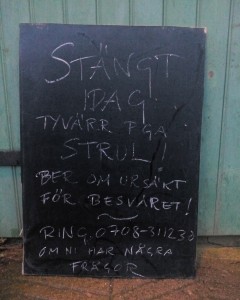 STÄNGT
IDAG
TYVÄRR PGA
STRUL!
BER OM URSÄKT
FÖR BESVÄRET!
RING 0708-311233
OM NI HAR NÅGRA
FRÅGOR